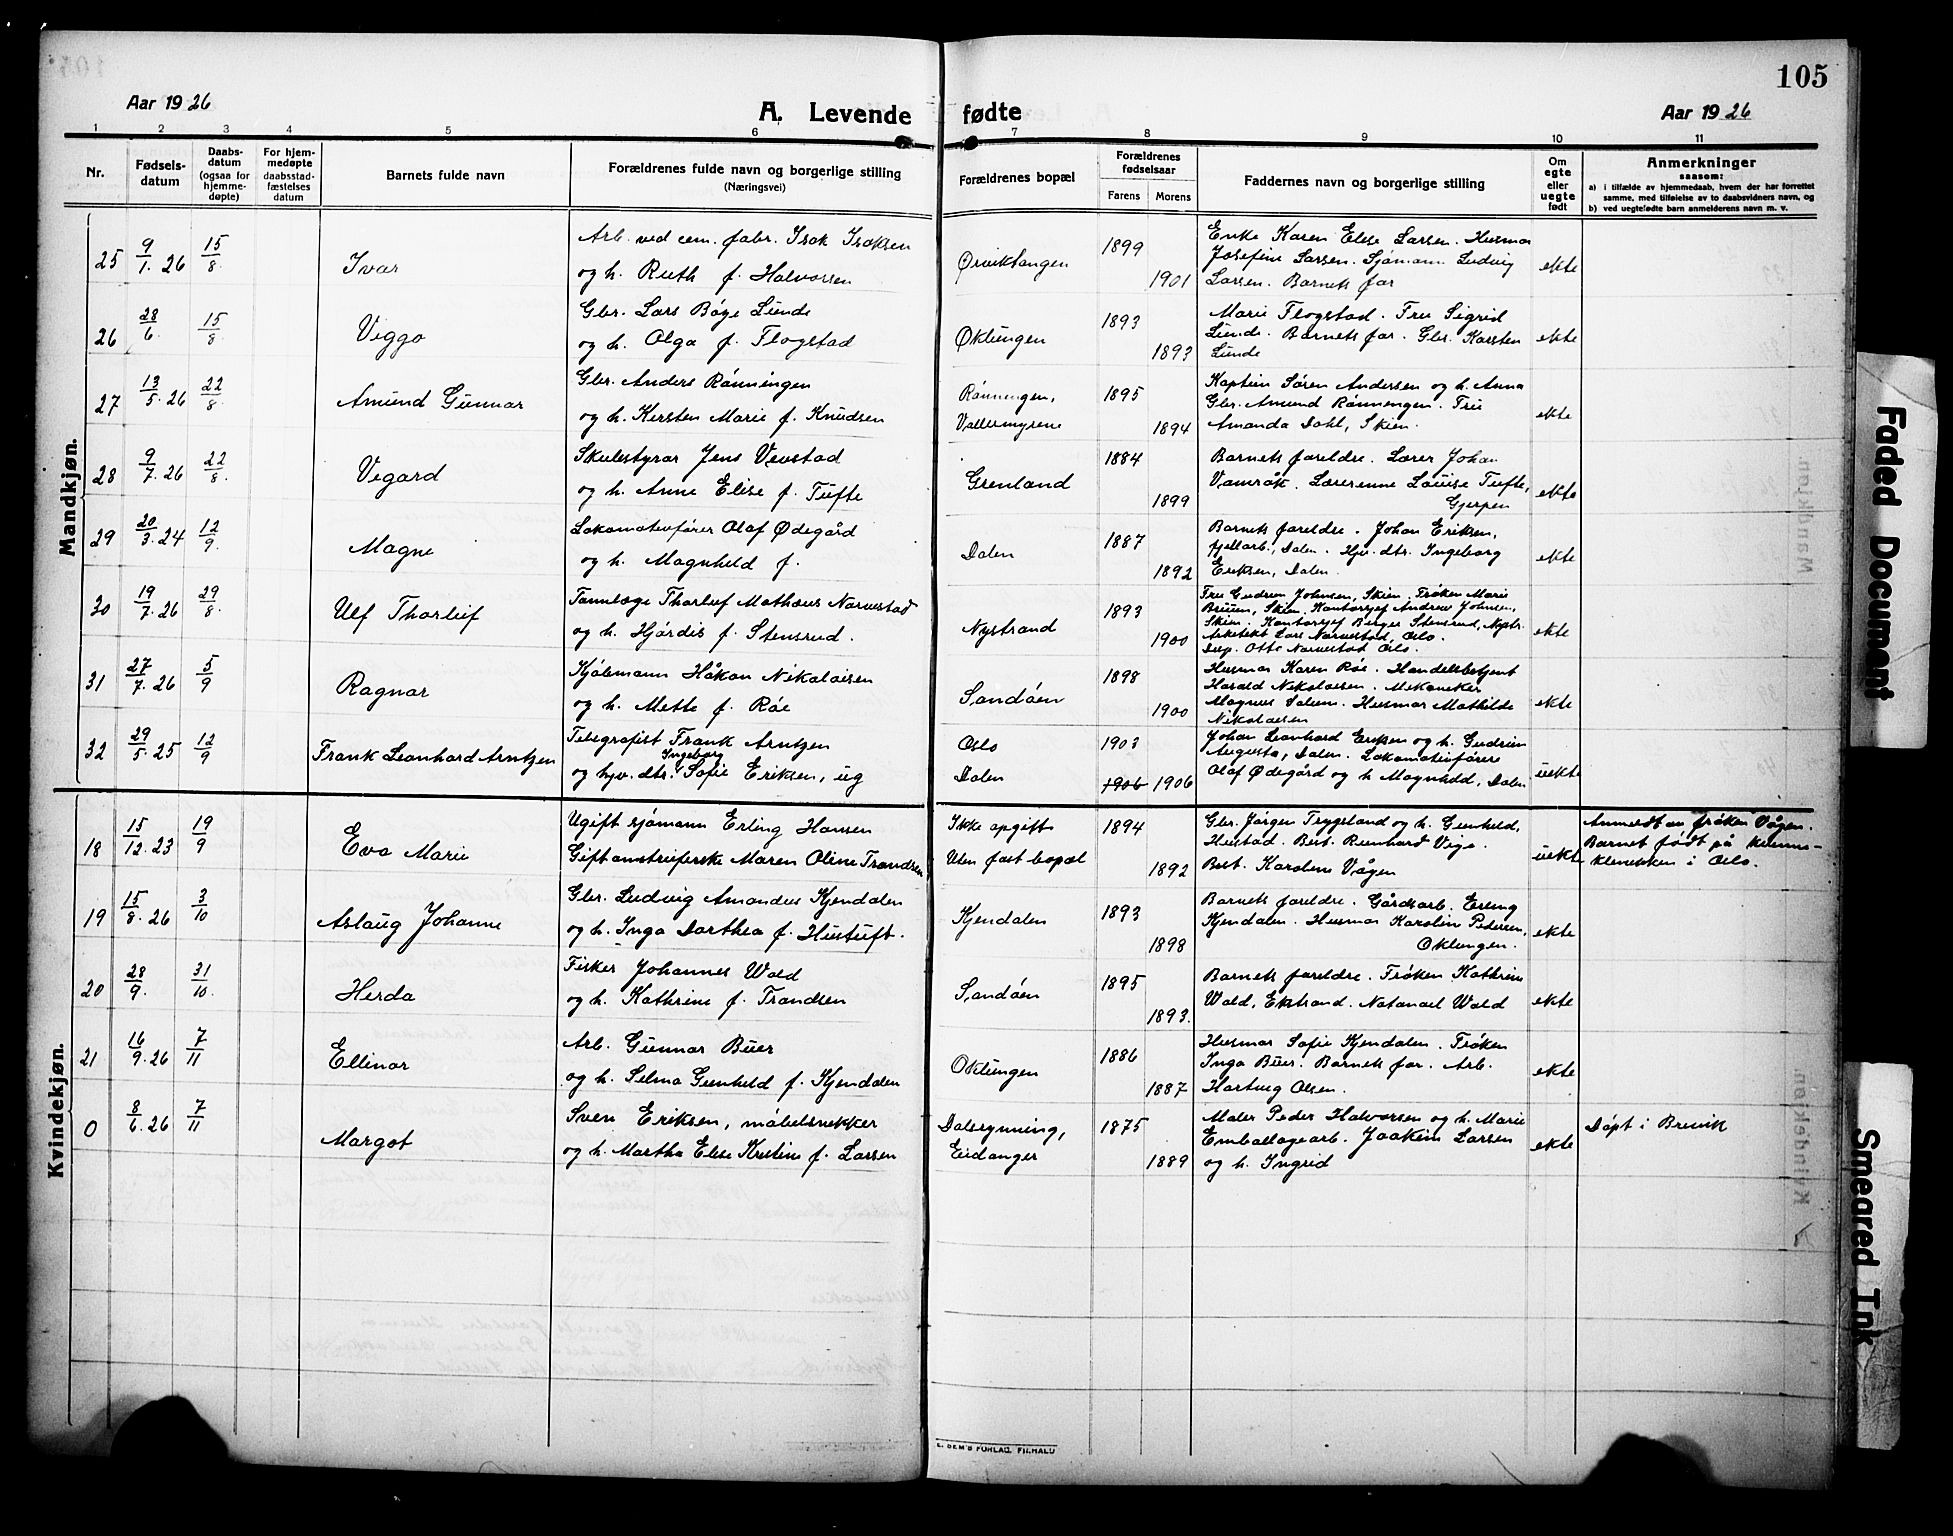 105
Aar 1926
A. Levende fødte
Aar 1926
1 2 3 4 5 6 7 8 9 10 11
Nr.
Fødsels-
datum
Daabs-
datum
(ogsaa for
hjemme-
døpte)
For hjem-
medøpte
daabsstad-
fæstelses
datum
Barnets fulde navn
Forældrenes fulde navn og borgerlige stilling
(Næringsvei)
Forældrenes bopæl
Forældrenes
fødselsaar
Farens Morens
Faddernes navn og borgerlige stilling
Om
egte
eller
uegte
født
Anmerkninger
saasom:
a) i tilfælde av hjemmedaab, hvem der har forrettet
samme, med tilføielse av to daabsvidners navn, og
b) ved uegtefødte barn anmelderens navn m. v.
Mandkjøn.
25 9/1. 26 15/8 Ivar
Arb. ved cem. fabr. Isak Isaksen
og h. Ruth f. Halvorsen
Ørviktangen 1899 1901
Enke Karen Elise Larsen. Husmor
Josefine Larsen. Sjømann Ludvig
Larsen. Barnets far
ekte
26 28/6. 15/8 Viggo
Gbr. Lars Bøye Lunde
og h. Olga f. Flogstad
Øklungen 1893 1893
Marie Flogstad. Fru Sigrid
Lunde. Barnets far. Gbr. Karsten
Lunde
ekte
27 13/5. 26 22/8 Amund Gunnar
Gbr. Anders Rønningen
og h. Kirsten Marie f. Knudsen
Rønningen,
Vallermyrene
1895 1894
Kaptein Søren Andersen og h. Anna
Gbr. Amund Rønningen. Fru
Amanda Dahl, Skien.
ekte
28 9/7. 26 22/8. Vegard
Skulestyrar Jens Vevstad
og h. Anne Elise f. Tufte
Grenland 1884 1899
Barnets foreldre. Lærer Johan
Vamråk. Lærerinne Louise Tufte,
Gjerpen
ekte
29 20/3. 24 12/9. Magne
Lokomotivfører Olaf Ødegård
og h. Magnhild f.
Dalen 1887 1892
Barnets foreldre. Johan Eriksen,
fjellarb., Dalen. Hjv. dtr. Ingeborg
Eriksen, Dalen.
ekte
30 19/7. 26 29/8 Ulf Thorluf
Tannlæge Thorluf Mathæus Narvestad
og h. Hjørdis f. Stensrud.
Nystrand 1893 1900
Fru Gudrun Johnsen, Skien. Frøken Marie
Bruun, Skien. Kontorsjef Andrew Johnsen,
Skien. Kontorsjef Birger Stensrud, Nystr.
Arkitekt Lars Narvestad, Oslo.
Disp. Otto Narvestad Oslo.
ekte
31 27/7. 26 5/9 Ragnar
Kjølmann Håkon Nikolaisen
og h. Mette f. Røe
Sandøen 1898 1900
Husmor Karen Røe. Handelsbetjent
Harald Nikolaisen. Mekaniker
Magnus Solum. Husmor Mathilde
Nikolaisen
ekte
32 29/5. 25 12/9 Frank Leonhard Arntzen
Telegrafist Frank Arntzen
Ingeborg
og hjv. dtr. Sofie Eriksen, ug
Oslo
Dalen
1903 1906 1906
Johan Leonhard Eriksen og h. Gudrun
Augusta, Dalen. Lokomotivfører
Olaf Ødegård og h Magnhild, Dalen
uekte
Kvindekjøn.
18 15/12. 23 19/9 Eva Marie
Ugift sjømann Erling Hansen
Gift omstreiferske Maren Oline Trandsen
Ikke opgitt
Uten fast bopæl
1894 1892
Gbr. Jørgen Trygsland og h. Gunhild,
Hustad. Best. Reinhard Vige.
Best. Karoline Vågen
uekte
Anmeldt av frøken Vågen.
Barnet født på kvinne-
klinikken i Oslo.
19 15/8. 26 3/10 Aslaug Johanne
Gbr. Ludvig Amandus Kjendalen
og h. Inga Dorthea f. Hustuft.
Kjendalen 1893 1898
Barnets foreldre. Gårdsarb. Erling
Kjendalen. Husmor Karoline Pedersen,
Oklungen.
ekte
20 28/9. 31/10. Herda
Fisker Johannes Wold
og h. Kathrine f. Trondsen
Sandøen 1895 1893.
Barnets foreldre. Frøken Kathrine
Wold, Ekstrand. Natanael Wold
ekte
21 16/9. 26 7/11 Ellinor
Arb. Gunnar Buer
og h. Selma Gunhild f. Kjendalen
Oklungen 1886 1887
Husmor Sofie Kjendalen. Frøken
Inga Buer. Barnets far. Arb.
Hartvig Olsen.
ekte
0 8/6. 26 7/11 Margot
Sven Eriksen, møbelsnekker
og h. Martha Elise Kristine f. Larsen
Dalsrynning,
Eidanger
1875 1889
Maler Peder Halvorsen og h. Marie
Emballagearb. Joakim Larsen
og h. Ingrid
ekte
Døpt i Brevik
E. SEM'S FORLAG, FR.HALD
Faded Document
Smeared Ink